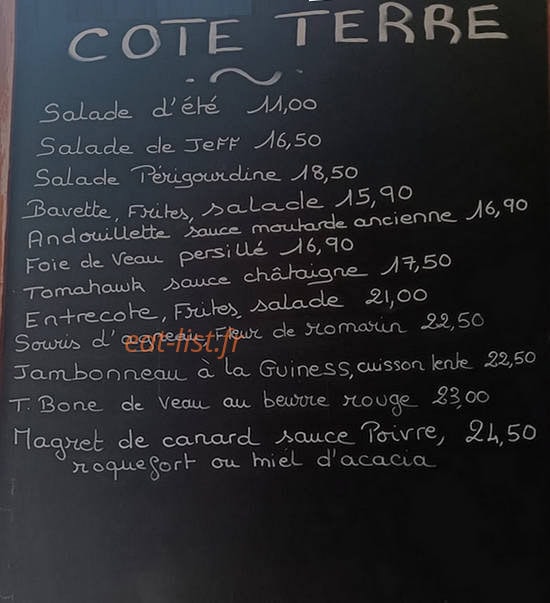 COTE TERRE
Salade d'été 11,00
Salade de Jeff 16,50
Salade Périgourdine 18,50
Bavette, Frites, salade 15,90
Andouillette sauce moutarde ancienne 16,90
Foie de Veau persillé 16,90
Tomahawk sauce châtaigne 17,50
Entrecote, Frites, salade 21,00
Souris d'agneau Fleur de romarin 22,50
eat-list.fr
Jambonneau à la Guiness, cuisson lente 22,50
T. Bone de Veau au beurre rouge 23,00
Magret de canard sauce Poivre, 24,50
roquefort ou miel d'acacia